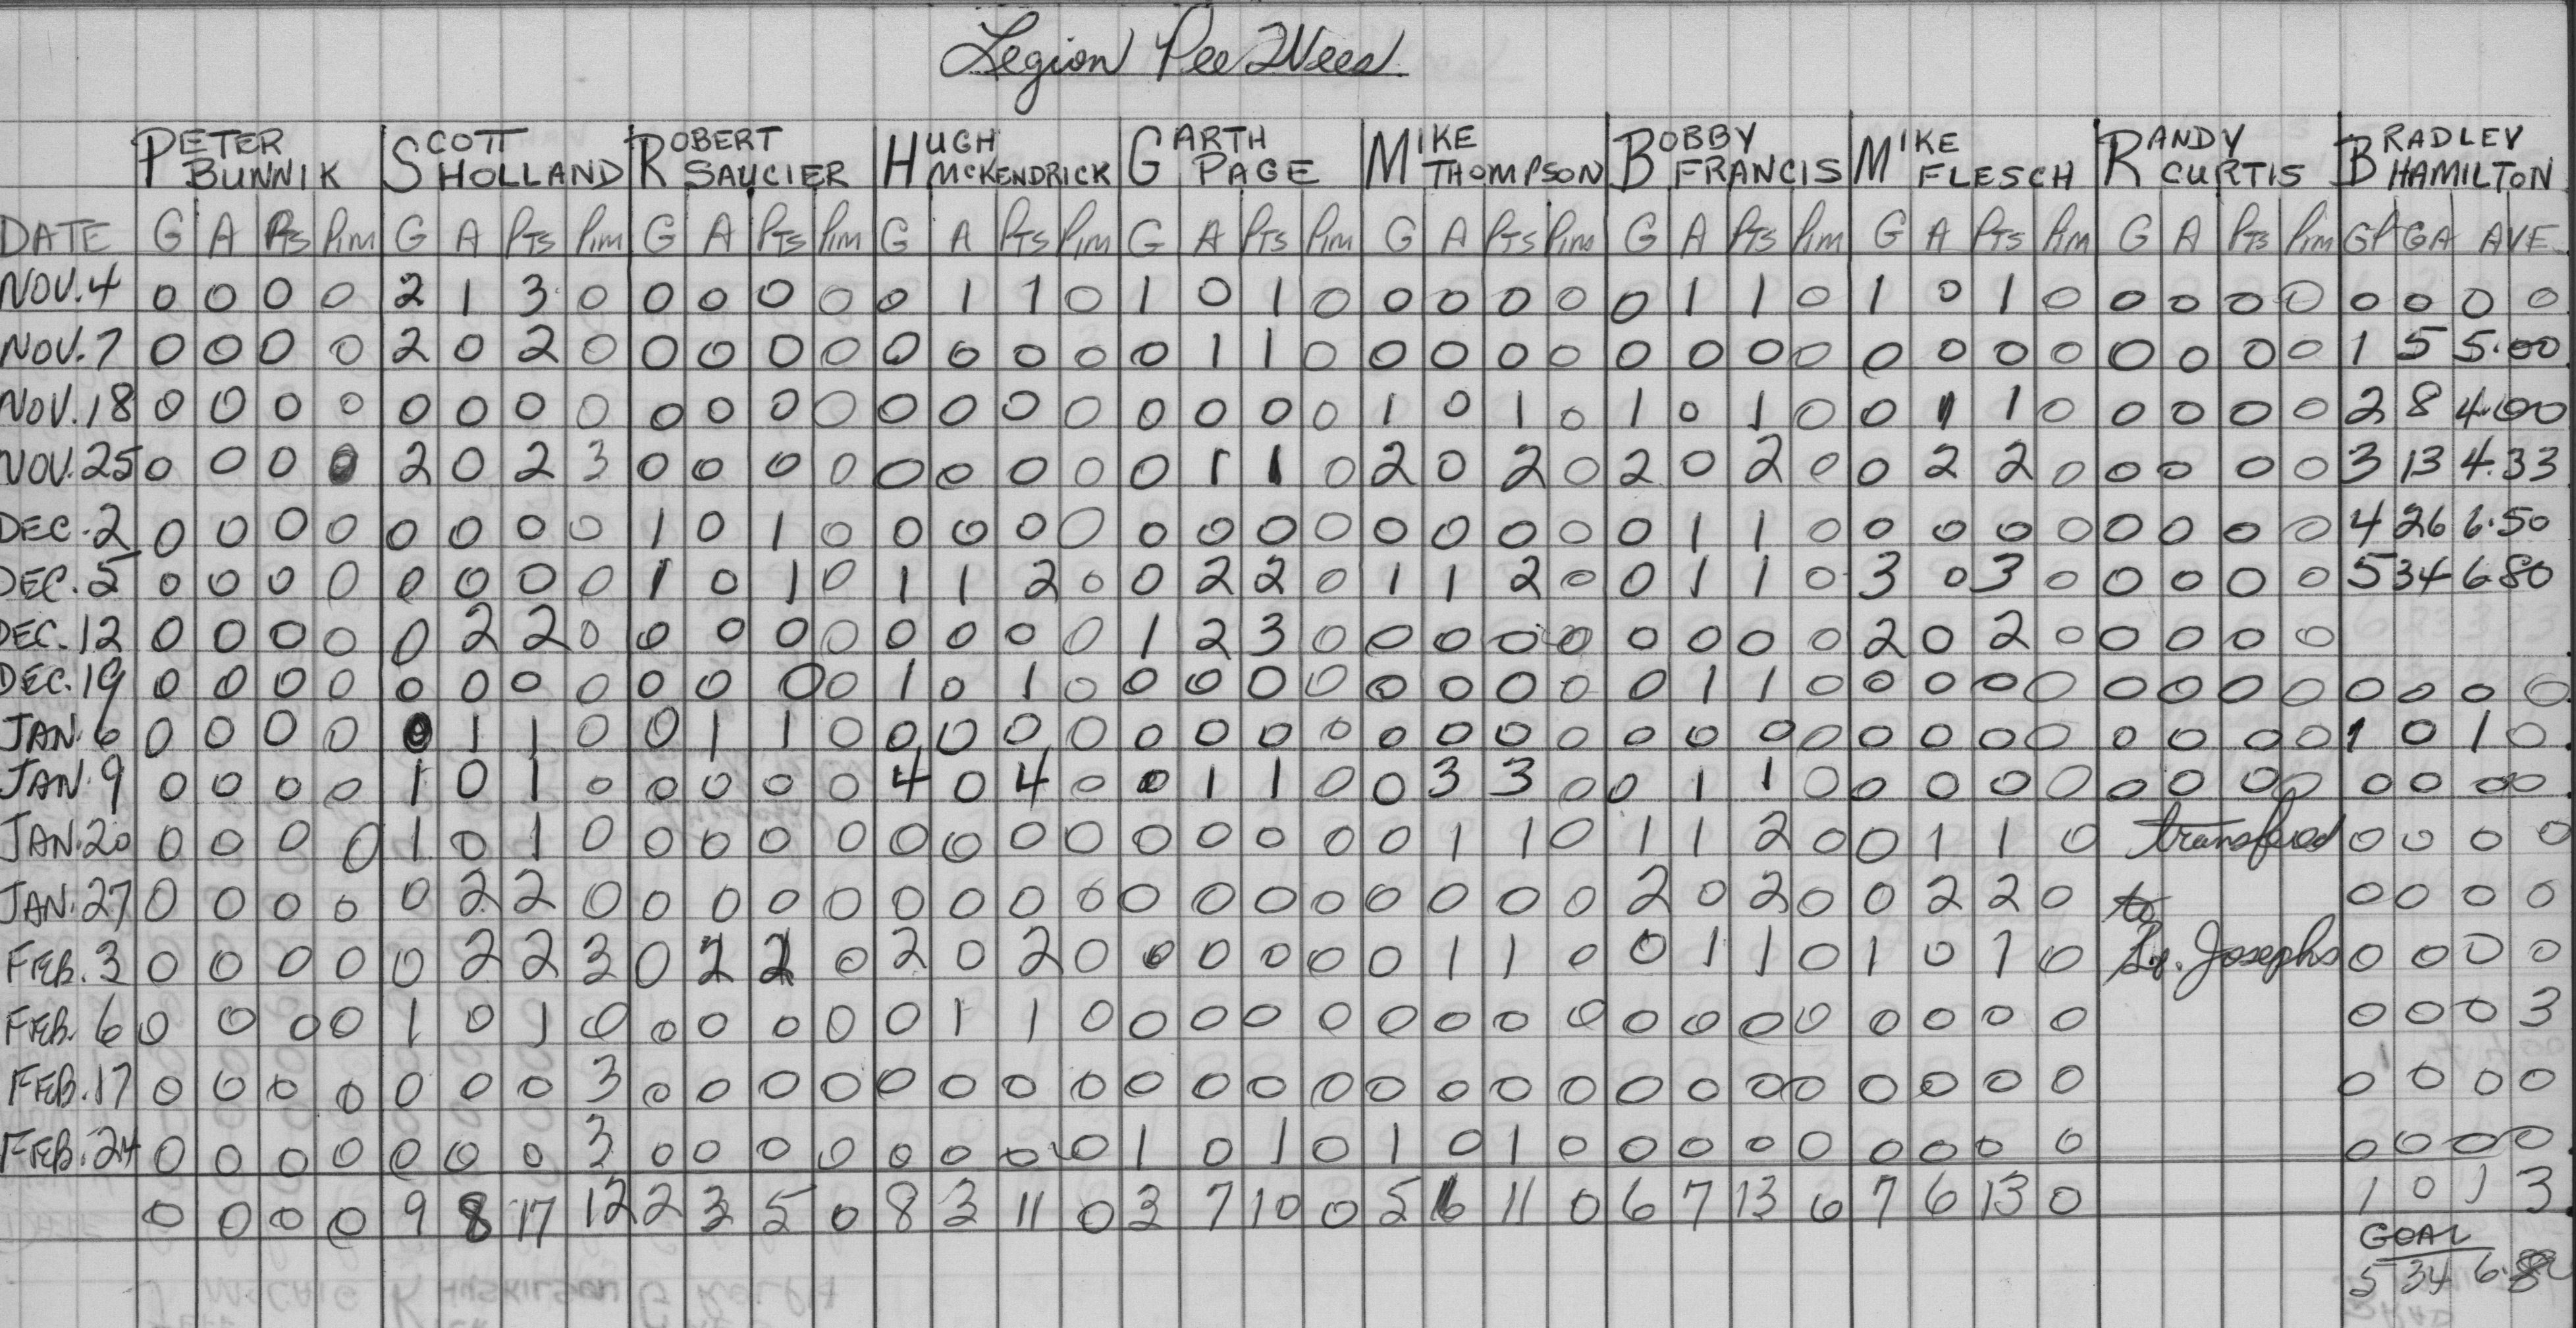 Legion Pee Wees
PETER BUNNIK SCOTT HOLLAND ROBERT SAUCIER HUGH MCKENDRICK GARTH PAGE MIKE THOMPSON BOBBY FRANCIS MIKE FLESCH RANDY CURTIS BRADLEY HAMILTON
DATE G A Pts Pim G A Pts Pim G A Pts Pim G A Pts Pim G A Pts Pim G A Pts Pim G A Pts Pim G A Pts Pim G A Pts Pim GP GA AVE
NOV. 4 0 0 0 0 2 1 3 0 0 0 0 0 0 1 1 0 1 0 1 0 0 0 0 0 0 1 1 0 1 0 1 0 0 0 0 0 0 0 0 0
NOV. 7 0 0 0 0 2 0 2 0 0 0 0 0 0 0 0 0 0 1 1 0 0 0 0 0 0 0 0 0 0 0 0 0 0 0 0 0 1 5 5.00
NOV. 18 0 0 0 0 0 0 0 0 0 0 0 0 0 0 0 0 0 0 0 0 1 0 1 0 1 0 1 0 0 1 1 0 0 0 0 0 2 8 4.00
NOV. 25 0 0 0 0 2 0 2 3 0 0 0 0 0 0 0 0 0 1 1 0 2 0 2 0 2 0 2 0 0 2 2 0 0 0 0 0 3 13 4.33
DEC. 2 0 0 0 0 0 0 0 0 1 0 1 0 0 0 0 0 0 0 0 0 0 0 0 0 0 1 1 0 0 0 0 0 0 0 0 0 4 26 6.50
DEC. 5 0 0 0 0 0 0 0 0 1 0 1 0 1 1 2 0 0 2 2 0 1 1 2 0 0 1 1 0 3 0 3 0 0 0 0 0 5 34 6.80
DEC. 12 0 0 0 0 0 2 2 0 0 0 0 0 0 0 0 0 1 2 3 0 0 0 0 0 0 0 0 0 2 0 2 0 0 0 0 0
DEC. 19 0 0 0 0 0 0 0 0 0 0 0 0 1 0 1 0 0 0 0 0 0 0 0 0 0 1 1 0 0 0 0 0 0 0 0 0 0 0 0 0
JAN. 6 0 0 0 0 0 1 1 0 0 1 1 0 0 0 0 0 0 0 0 0 0 0 0 0 0 0 0 0 0 0 0 0 0 0 0 0 1 0 1 0
JAN. 9 0 0 0 0 1 0 1 0 0 0 0 0 4 0 4 0 0 1 1 0 0 3 3 0 0 1 1 0 0 0 0 0 0 0 0 0 0 0 0 0
JAN. 20 0 0 0 0 1 0 1 0 0 0 0 0 0 0 0 0 0 0 0 0 0 1 1 0 1 1 2 0 0 1 1 0 transfered 0 0 0 0
JAN. 27 0 0 0 0 0 2 2 0 0 0 0 0 0 0 0 0 0 0 0 0 0 0 0 0 2 0 2 0 0 2 2 0 to 0 0 0 0
FEB. 3 0 0 0 0 0 2 2 3 0 2 2 0 2 0 2 0 0 0 0 0 0 1 1 0 0 1 1 0 1 0 1 0 Josephs 0 0 0 0
FEB. 6 0 0 0 0 1 0 1 0 0 0 0 0 0 1 1 0 0 0 0 0 0 0 0 0 0 0 0 0 0 0 0 0 0 0 0 3
FEB. 17 0 0 0 0 0 0 0 3 0 0 0 0 0 0 0 0 0 0 0 0 0 0 0 0 0 0 0 0 0 0 0 0 0 0 0 0
FEB. 24 0 0 0 0 0 0 0 3 0 0 0 0 0 0 0 0 1 0 1 0 1 0 1 0 0 0 0 0 0 0 0 0 0 0 0 0
0 0 0 0 9 8 17 12 2 3 5 0 8 3 11 0 3 7 10 0 5 6 11 0 6 7 13 0 7 6 13 0 1 0 1 3
GOAL
5 34 6.8